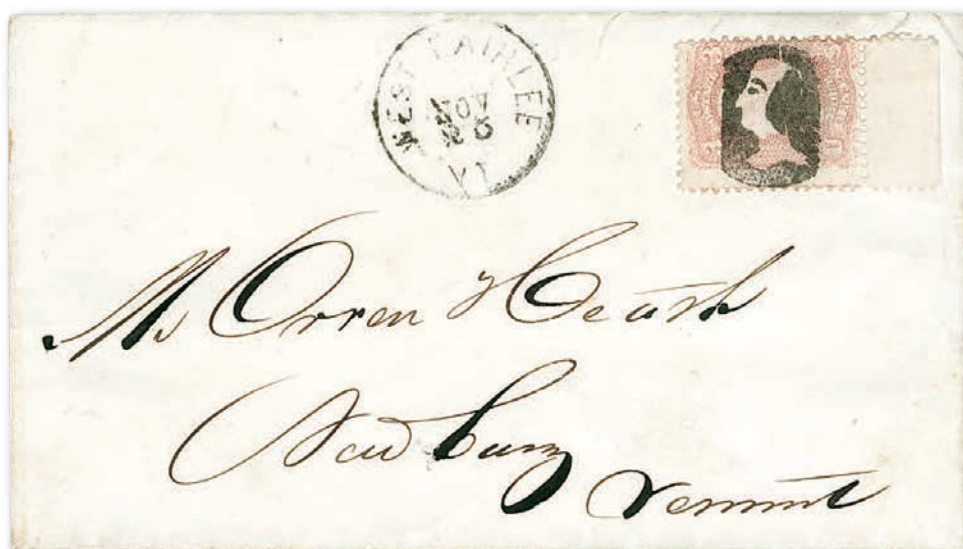 WEST FAIRLEE
NOV
VT
Mr Orren Heath
Newbury
Vermont